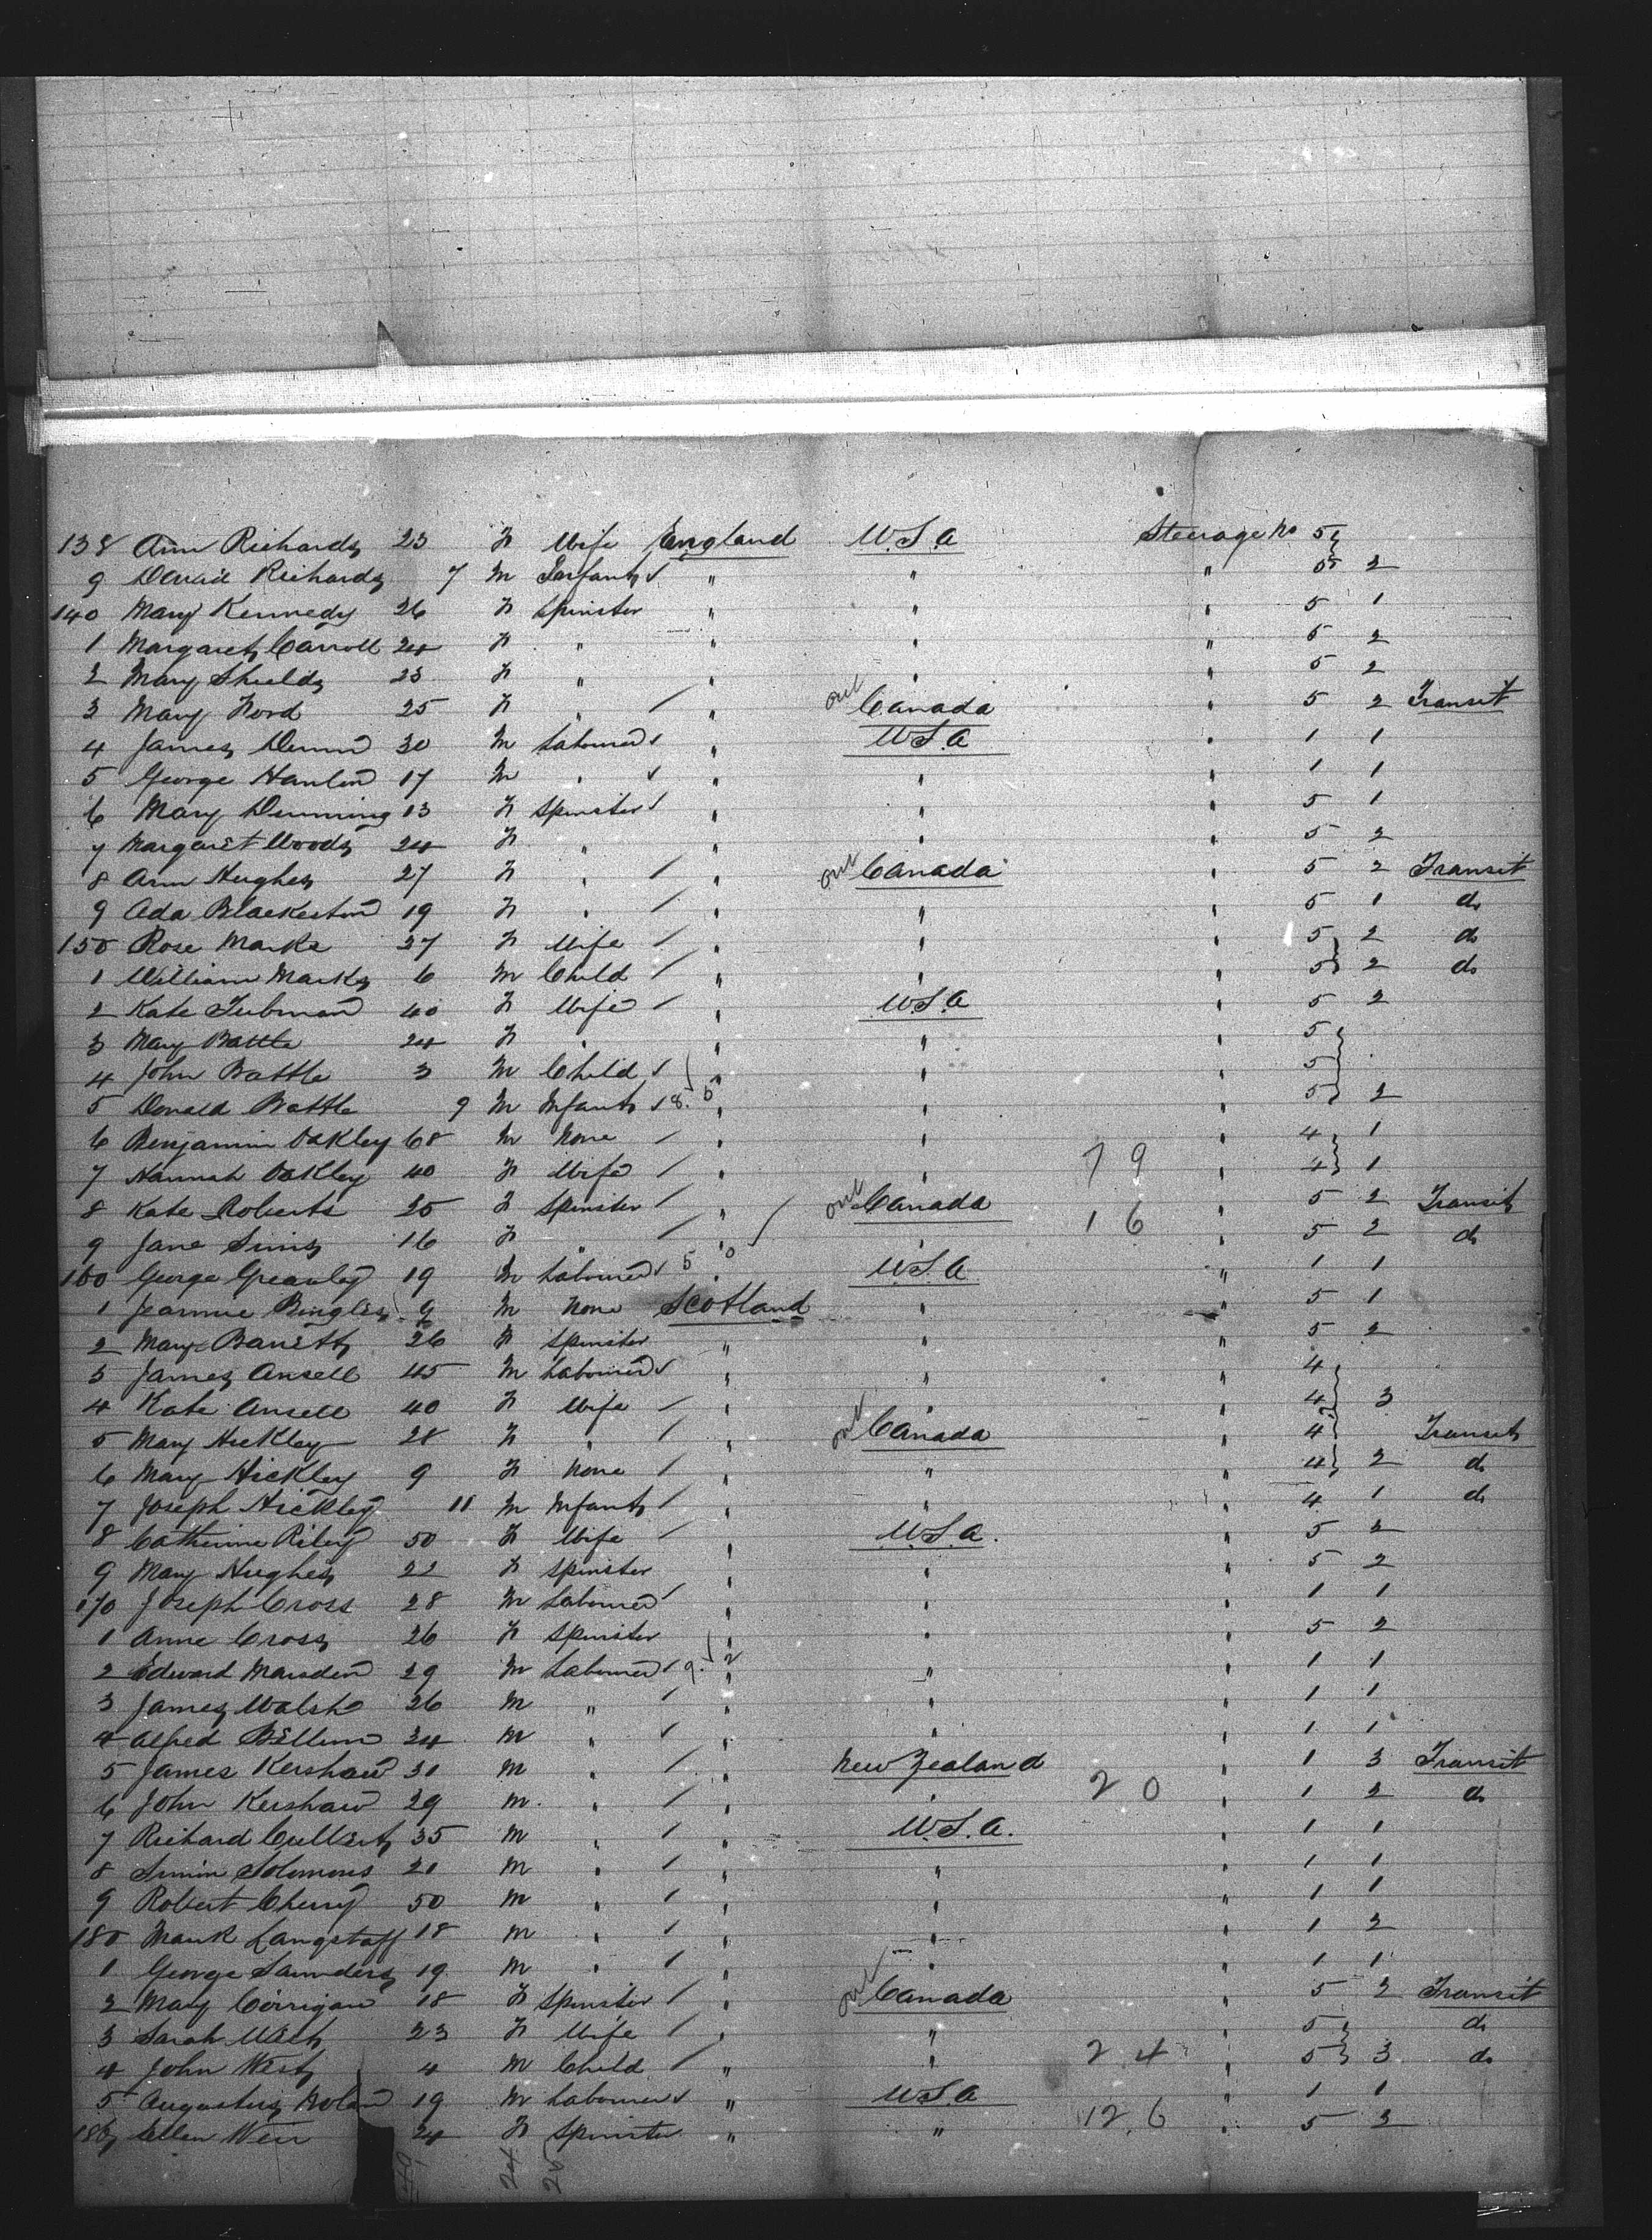 138 Ann Richards 23 F Wife England U.S.A Steerage No 5
9 David Richards 7 M Infant " " " 5 2
140 Mary Kennedy 26 F Spinster " " " 5 1
1 Margaret Carroll 24 F " " " " 5 2
2 Mary Shields 23 F " " " " 5 2
3 Mary Ford 25 F " " out Canada " 5 2 Transit
4 James Dunn 30 M Labourer " U.S.A " 1 1
5 George Hanlon 17 M " " " " 1 1
6 Mary Dunning 13 F Spinster " " " 5 1
7 Margaret Woods 24 F " " " " 5 2
8 Ann Hughes 27 F " " out Canada " 5 2 Transit
9 Ada Blackeston 19 F " " " " 5 1 do
150 Rose Marks 27 F Wife " " " 5 2 do
1 William Marks 6 M Child " " " 5 2 do
2 Kate Tubman 40 F Wife " U.S.A " 5 2
3 Mary Battle 24 F " " " " 5
4 John Battle 3 M Child " " " 5
5 Donald Battle 9 M Infant 8. 5 " " " 5 2
6 Benjamin Oakley 68 M None " " " 4 1
7 Hannah Oakley 40 F Wife " " 79 " 4 1
8 Kate Roberts 25 F Spinster " out Canada " 5 2 Transit
9 Jane Sims 16 F " " " 16 " 5 2 do
160 George Greanley 19 M Labourer 5 0 " U.S.A " 1 1
1 Jeannie Bingley 9 M None Scotland " " 5 1
2 Mary Barrett 26 F Spinster " " " 5 2
3 James Ansell 45 M Labourer " " " 4
4 Kate Ansell 40 F Wife " " " 4 3
5 Mary Hickley 28 F " " out Canada " 4 Transit
6 Mary Hickley 9 F None " " " 4 2 do
7 Joseph Hickley 11 M Infant " " " 4 1 do
8 Catherine Riley 50 F Wife " U.S.A. " 5 2
9 Mary Hughes 22 F Spinster " " " 5 2
170 Joseph Cross 28 M Labourer " " " 1 1
1 Anne Cross 26 F Spinster " " " 5 2
2 Edward Marsden 29 M Labourer 9. 2 " " " 1 1
3 James Walsh 26 M " " " " 1 1
4 Alfred 24 M " " " " 1 1
5 James Kershaw 31 M " " New Zealand " 1 3 Transit
6 John Kershaw 29 M " " " 20 " 1 2 do
7 Richard Culbert 35 M " " U.S.A. " 1 1
8 Simon Solomons 21 M " " " " 1 1
9 Robert Cherry 50 M " " " " 1 1
180 Mark Langstaff 18 M " " " " 1 2
1 George Saunders 19 M " " " " 1 1
2 Mary Corrigan 18 F Spinster " out Canada " 5 2 Transit
3 Sarah West 23 F Wife " " " 5 do
4 John West 4 M Child " " 24 " 5 3 do
5 Augustus 19 M Labourer " U.S.A " 1 1
186 Ellen Weir 24 F Spinster " " 126 " 5 3
24